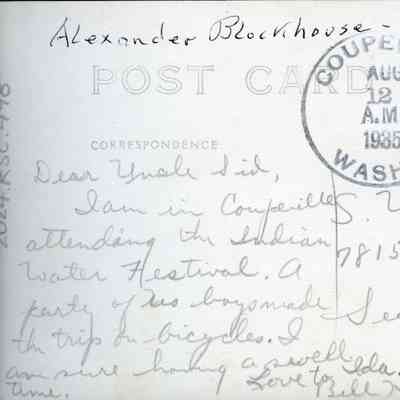 Alexander Blockhouse -
POST CARD
COUPE
AUG
12
A.M
1935
WASH
CORRESPONDENCE
Dear Uncle Sid,
I am in Coupeville
attending the Indian
Water Festival. A
party of us boys made
th trip on bicycles. I
am sure having a swell
time.
Love to Ida.
Bill
S.
7815
Sea
2024.RSC.